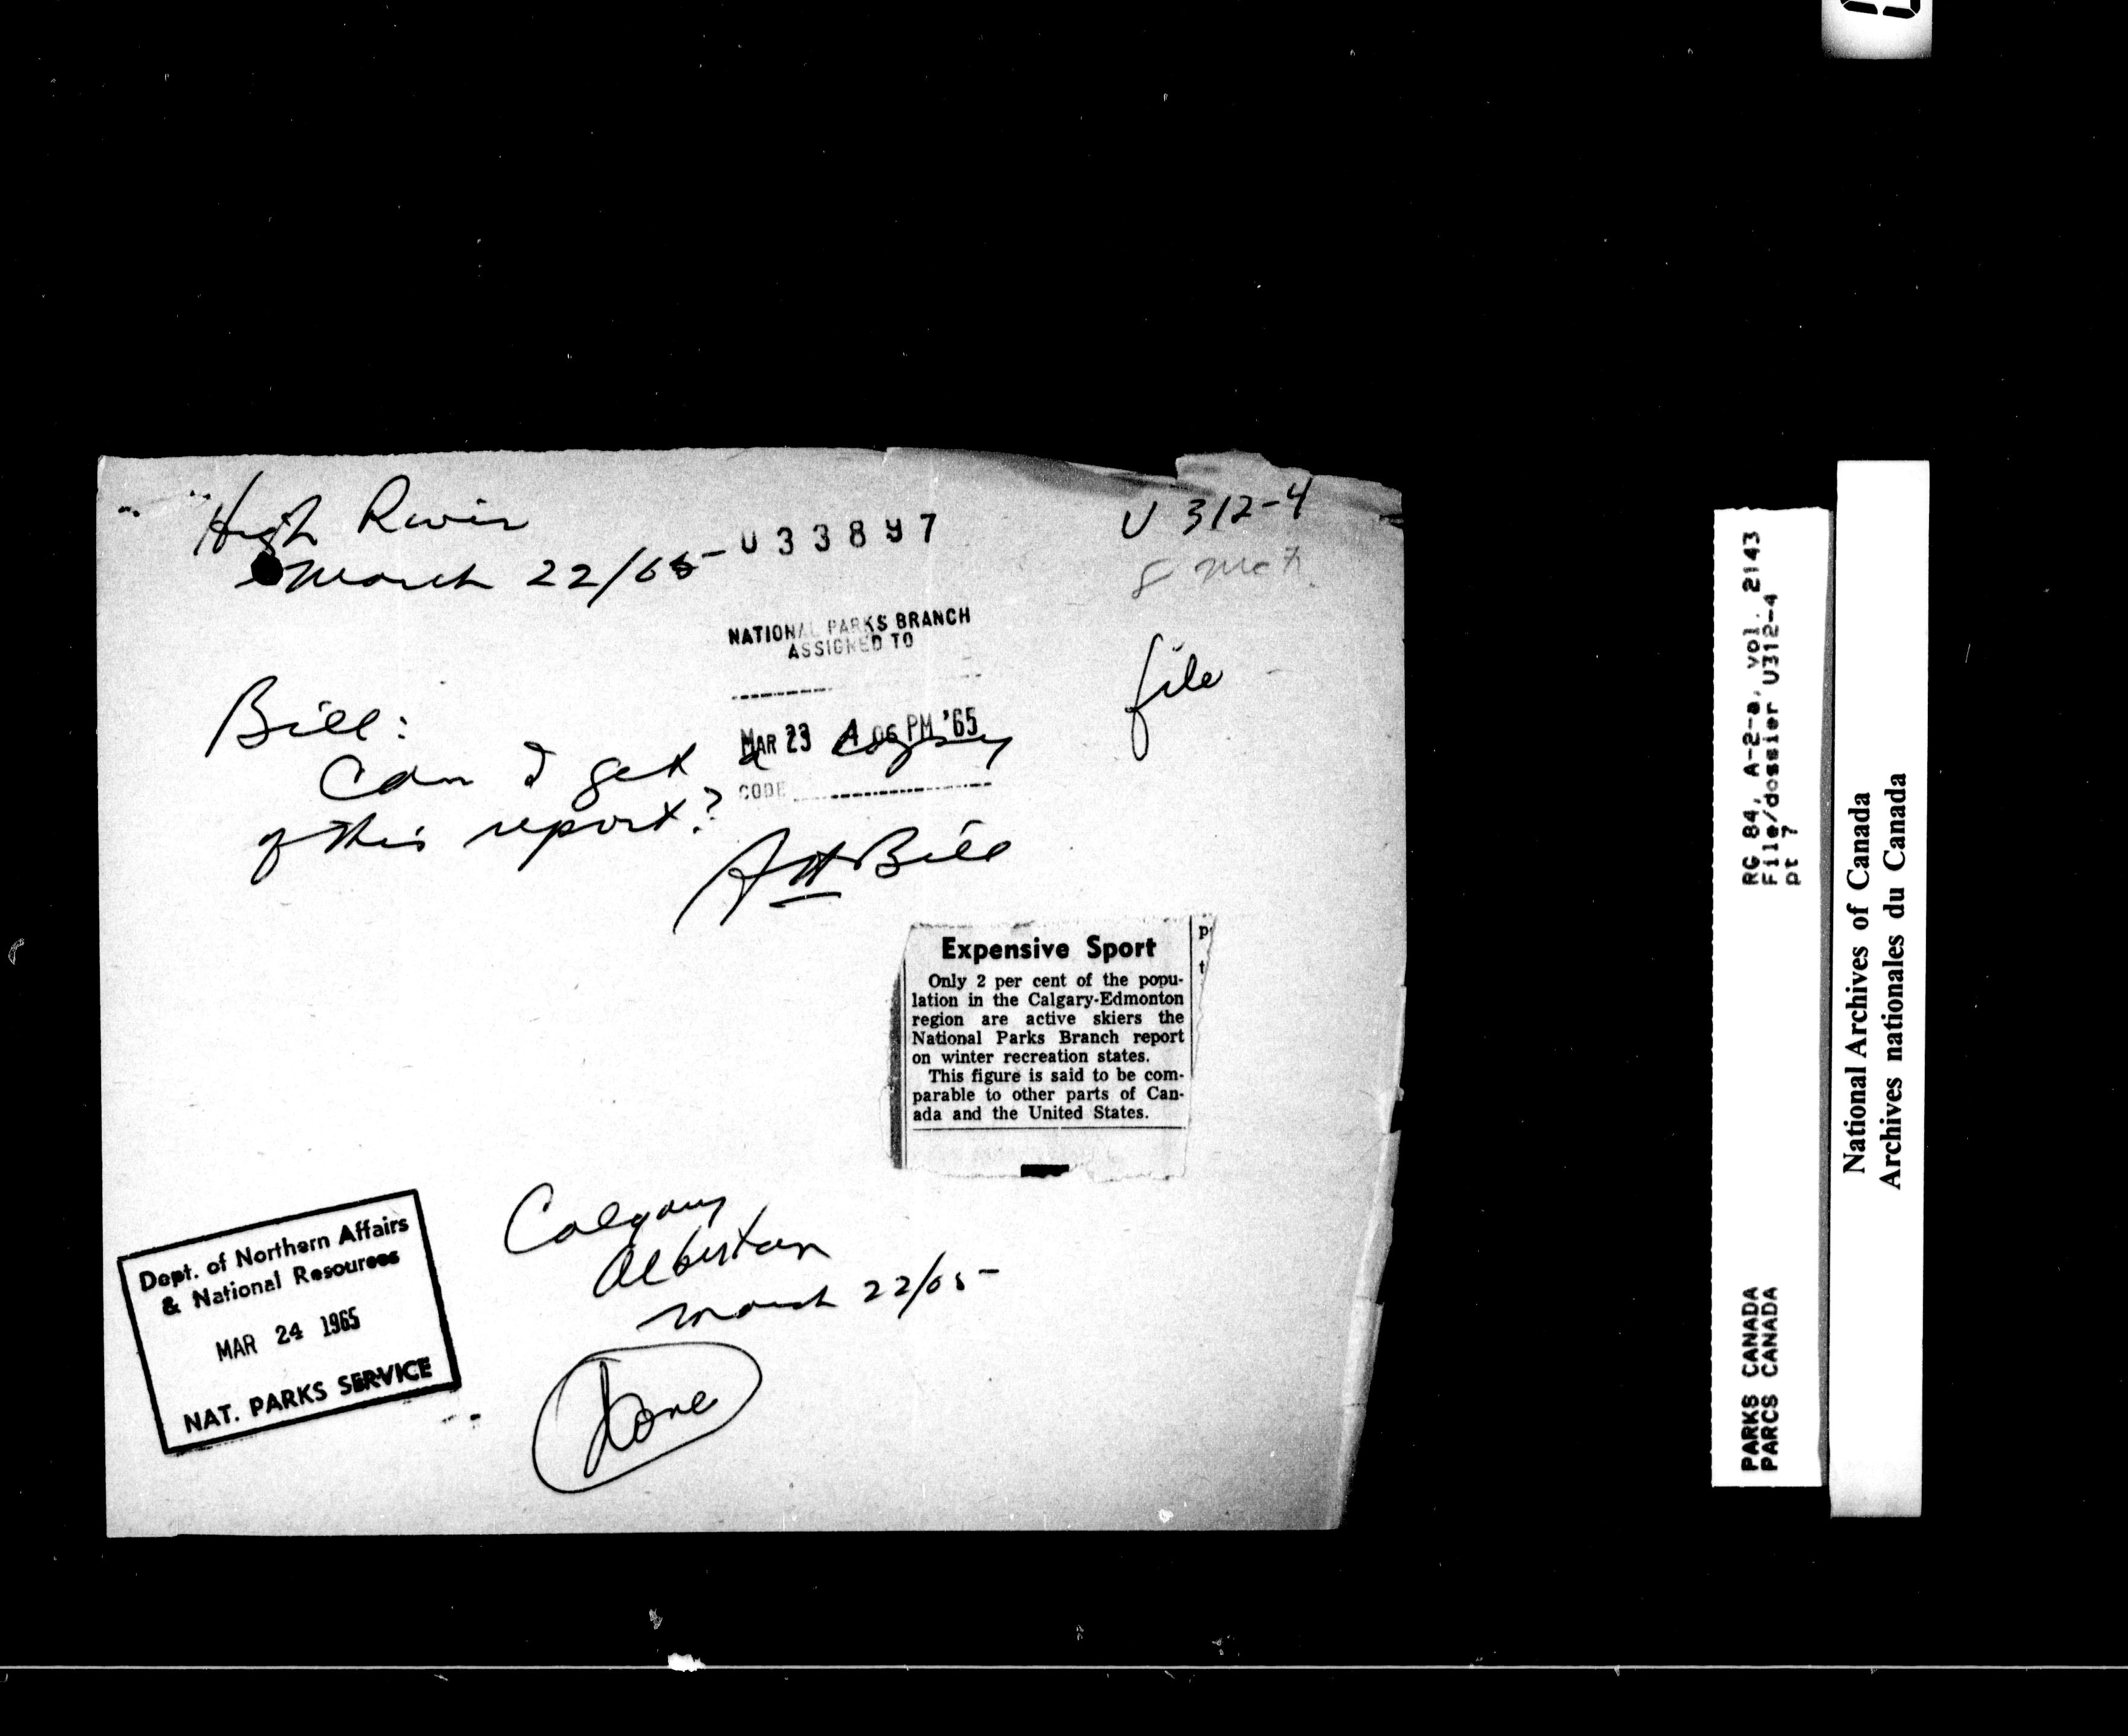 High River
March 22/65
U33897
U 312-4
NATIONAL PARKS BRANCH
ASSIGNED TO
MAR 23 4 06 PM '65
CODE
file
Bill:
Can I get a copy
of this report?
Bill
Expensive Sport
Only 2 per cent of the popu-
lation in the Calgary-Edmonton
region are active skiers the
National Parks Branch report
on winter recreation states.
This figure is said to be com-
parable to other parts of Can-
ada and the United States.
Calgary
Albertan
March 22/65
Done
Dept. of Northern Affairs
& National Resources
MAR 24 1965
NAT. PARKS SERVICE
RG 84, A-2-a, vol. 2143
File/dossier U312-4
pt 7
PARKS CANADA
PARCS CANADA
National Archives of Canada
Archives nationales du Canada